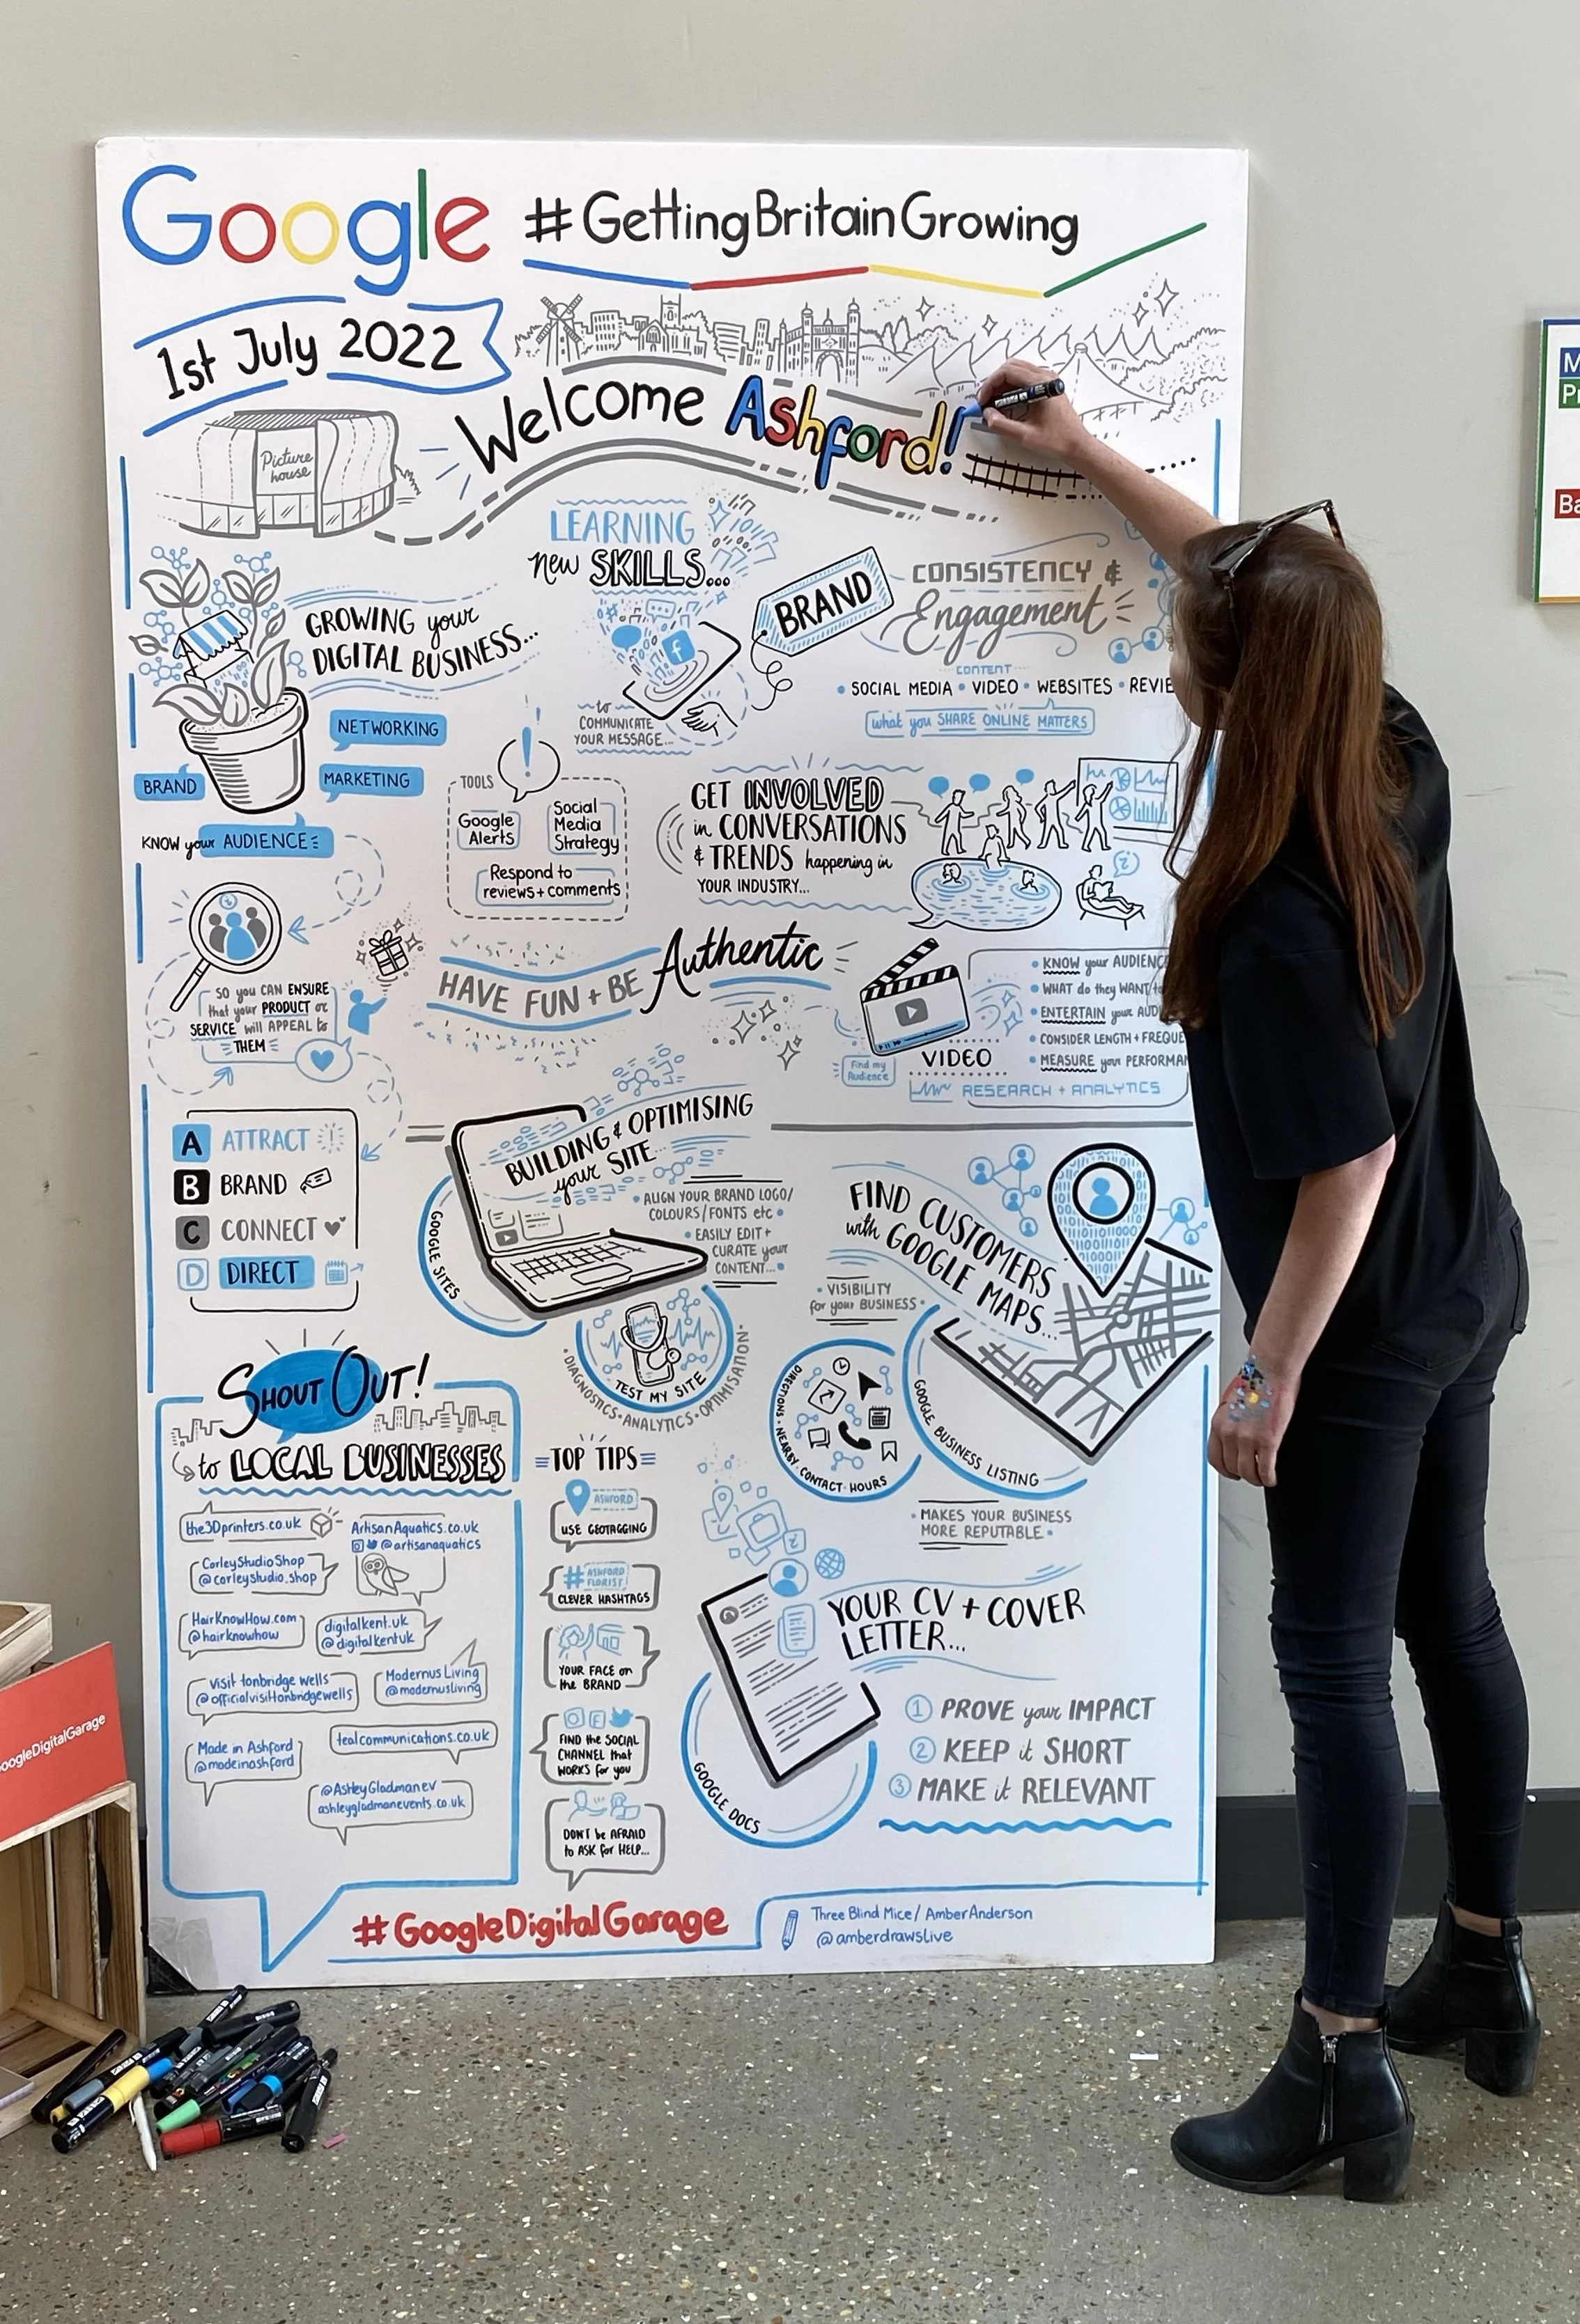 Google #GettingBritainGrowing
1st July 2022
Welcome Ashford!
Picture
house
LEARNING
new SKILLS...
to
COMMUNICATE
YOUR MESSAGE...
GROWING your
DIGITAL BUSINESS...
NETWORKING
BRAND
MARKETING
BRAND
CONSISTENCY &
Engagement
CONTENT
• SOCIAL MEDIA • VIDEO • WEBSITES •
what you SHARE ONLINE MATTERS
KNOW your AUDIENCE
TOOLS
Google
Alerts
Social
Media
Strategy
Respond to
reviews + comments
GET INVOLVED
in CONVERSATIONS
& TRENDS happening in
YOUR INDUSTRY...
SO you CAN ENSURE
that your PRODUCT or
SERVICE will APPEAL to
THEM
HAVE FUN + BE Authentic
VIDEO
Find my
Audience
• KNOW your AUDIENC
• WHAT do they WANT
• ENTERTAIN your AUD
• CONSIDER LENGTH + FREQUE
• MEASURE your PERFORMA
RESEARCH + ANALYTICS
A ATTRACT
B BRAND
C CONNECT
D DIRECT
BUILDING & OPTIMISING
your SITE
GOOGLE SITES
• ALIGN YOUR BRAND LOGO/
COLOURS/FONTS etc •
• EASILY EDIT +
CURATE your
CONTENT... •
TEST MY SITE
• DIAGNOSTICS • ANALYTICS • OPTIMISATION •
FIND CUSTOMERS
with GOOGLE MAPS...
• VISIBILITY
for your BUSINESS •
DIRECTIONS • NEARBY • CONTACT • HOURS
GOOGLE BUSINESS LISTING
• MAKES YOUR BUSINESS
MORE REPUTABLE •
SHOUT OUT!
to LOCAL BUSINESSES
the3Dprinters.co.uk
ArtisanAquatics.co.uk
@artisanaquatics
CorleyStudioShop
@corleystudio.shop
HairKnowHow.com
@hairknowhow
digitalkent.uk
@digitalkentuk
visit tonbridge wells
@officialvisittonbridgewells
Modernus Living
@modernusliving
Made in Ashford
@madeinashford
tealcommunications.co.uk
@AshleyGladmanev
ashleygladmanevents.co.uk
TOP TIPS
ASHFORD
USE GEOTAGGING
# ASHFORD
FLORIST
CLEVER HASHTAGS
YOUR FACE on
the BRAND
FIND the SOCIAL
CHANNEL that
WORKS for you
DON'T be AFRAID
to ASK for HELP...
YOUR CV + COVER
LETTER...
GOOGLE DOCS
1 PROVE your IMPACT
2 KEEP it SHORT
3 MAKE it RELEVANT
#GoogleDigitalGarage
Three Blind Mice / AmberAnderson
@amberdrawslive
oogleDigitalGarage
M
Pr
Ba